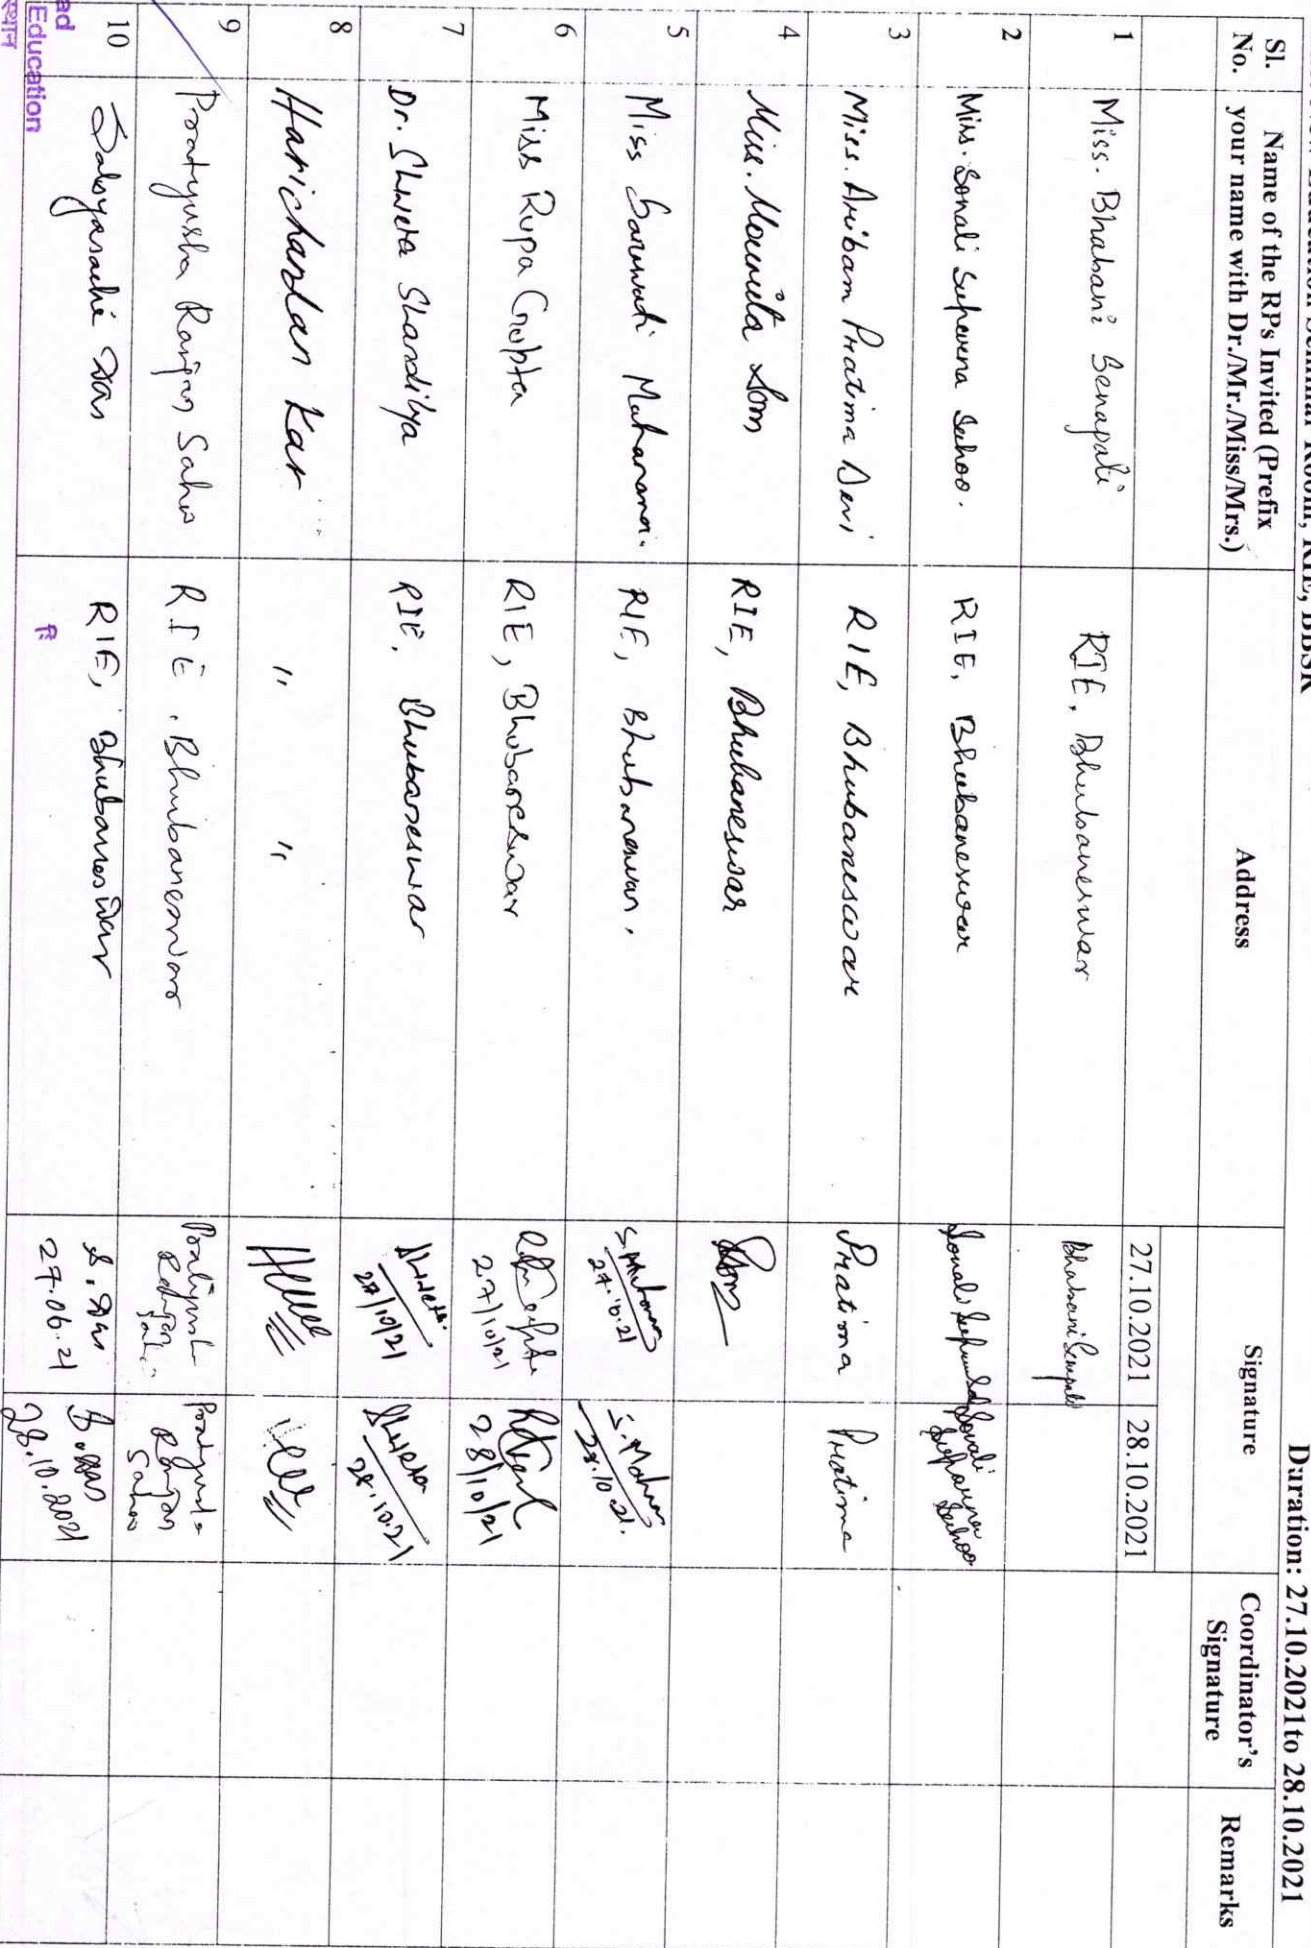 Education Seminar Room, RIE, BBSR
Duration: 27.10.2021to 28.10.2021
Sl. No. Name of the RPs Invited (Prefix your name with Dr./Mr./Miss/Mrs.) Address Signature Coordinator's Signature Remarks
27.10.2021 28.10.2021
1 Miss. Bhabani Senapati RIE, Bhubaneswar Bhabani Senapati
2 Miss. Sonali Suparna Sahoo. RIE, Bhubaneswar Sonali Suparna Sahoo
3 Miss. Aribam Pratima Devi RIE, Bhubaneswar Pratima Pratima
4 Miss. Moumita Som RIE, Bhubaneswar Som
5 Miss Saraswati Maharana. RIE, Bhubaneswar. 27.10.21 28.10.21.
6 Miss Rupa Gupta RIE, Bhubaneswar 27/10/21 28/10/21
7 Dr. Shweta Shandilya RIE, Bhubaneswar Shweta. 27/10/21 Shweta 28.10.21
8 Harichandan Kar " "
9 Pratyusha Ranjan Sahoo RIE, Bhubaneswar Pratyusha Ranjan Sahoo Pratyusha Ranjan Sahoo
10 Sabyasachi Das RIE, Bhubaneswar S. Das 27.06.21 S. Das 28.10.2021
ad
Education